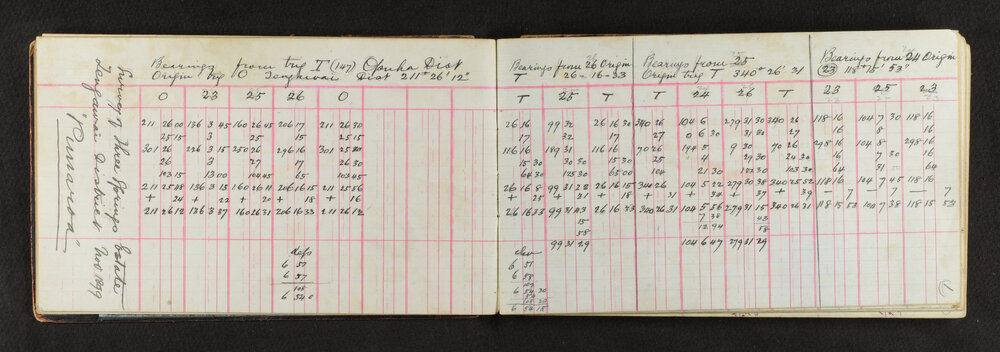 Survey of Three Springs Estate
Tengawai District Nov 1899
"Punaroa"
Bearings from trig T (147) Opuha Dist
Origin trig O Tengawai Dist 211° 26' 12"
O 23 25 26 O
211 26 00 136 3 45 160 26 45 206 17 211 26 30
25 15 3 25 15 25 15
301 26 226 3 15 250 26 296 16 301 25 30
26 3 27 17 26 30
103 15 13 00 104 45 65 103 45
211 25 48 136 3 15 160 26 11 206 16 15 211 25 56
+ 24 + 22 + 20 + 18 + 16
211 26 12 136 3 37 160 26 31 206 16 33 211 26 12
6 57
6 57
108
6 54 0
Bearings from 26 Origin
T 26 = 16 - 33
T 25 T
26 16 99 32 26 16 30
17 32 17
116 16 189 31 116 16
15 30 30 30 15 30
64 30 125 30 65 00
26 16 8 99 31 22 26 16 15
+ 25 + 21 + 18
26 16 33 99 31 43 26 16 33
15
58
99 31 29
6 51
6 58
109
6 54 30
6 54 15
Bearings from 25
Origin trig T 340° 26' 31
T 24 26 T
340 26 104 6 279 31 30 340 26
27 0 6 30 31 30 27
70 26 194 5 9 30 70 26
25 4 29 30 24 30
104 21 30 122 30 103 30
340 26 104 5 22 279 30 38 340 25 52
+ 31 + 34 + 37 39
340 26 31 104 5 56 279 31 15 340 26 31
7 38 43
12 94 58
104 6 47 279 31 29
Bearings from 24 Origin
23 118° 15' 53"
23 25 23
118 16 104 7 30 118 16
16 8 16
298 16 104 8 298 16
16 7 30 16
64 31 64
118 16 104 7 45 118 16
- 7 - 7 - 7
118 15 53 104 7 38 118 15 53